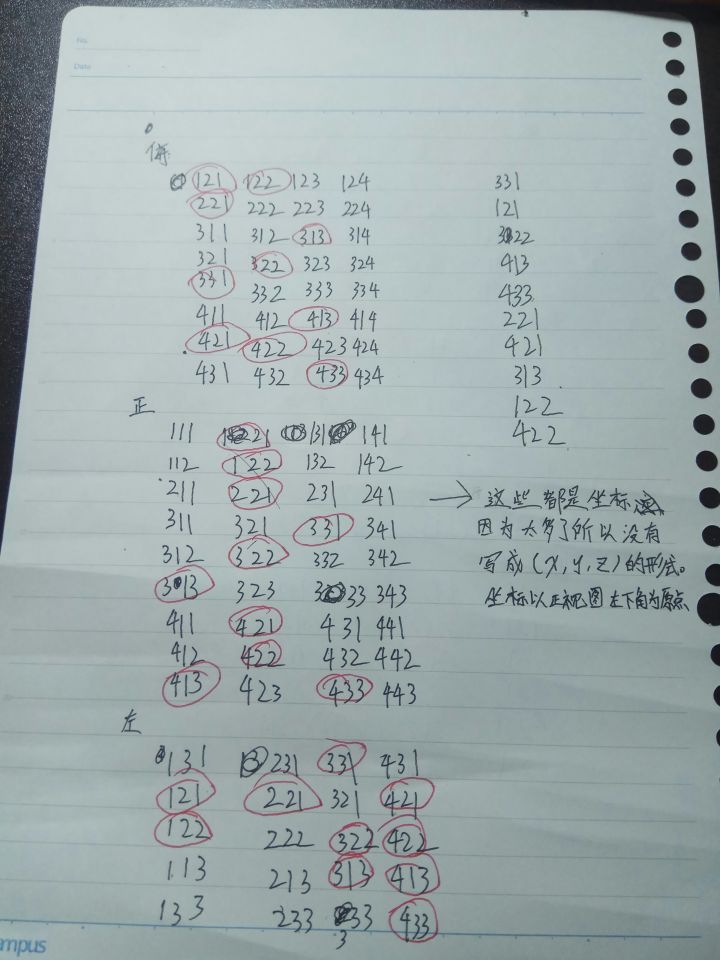 No.
Date
俯
121 122 123 124 331
221 222 223 224 121
311 312 313 314 322
321 322 323 324 413
331 332 333 334 433
411 412 413 414 221
421 422 423 424 421
431 432 433 434 313
122
正
111 121 131 141 422
112 122 132 142
211 221 231 241
→ 这些都是坐标
311 321 331 341 因为太多了所以没有
312 322 332 342 写成(x,y,z)的形式。
313 323 333 343 坐标以正视图左下角为原点
411 421 431 441
412 422 432 442
413 423 433 443
左
131 231 331 431
121 221 321 421
122 222 322 422
113 213 313 413
133 233 333 433
mpus